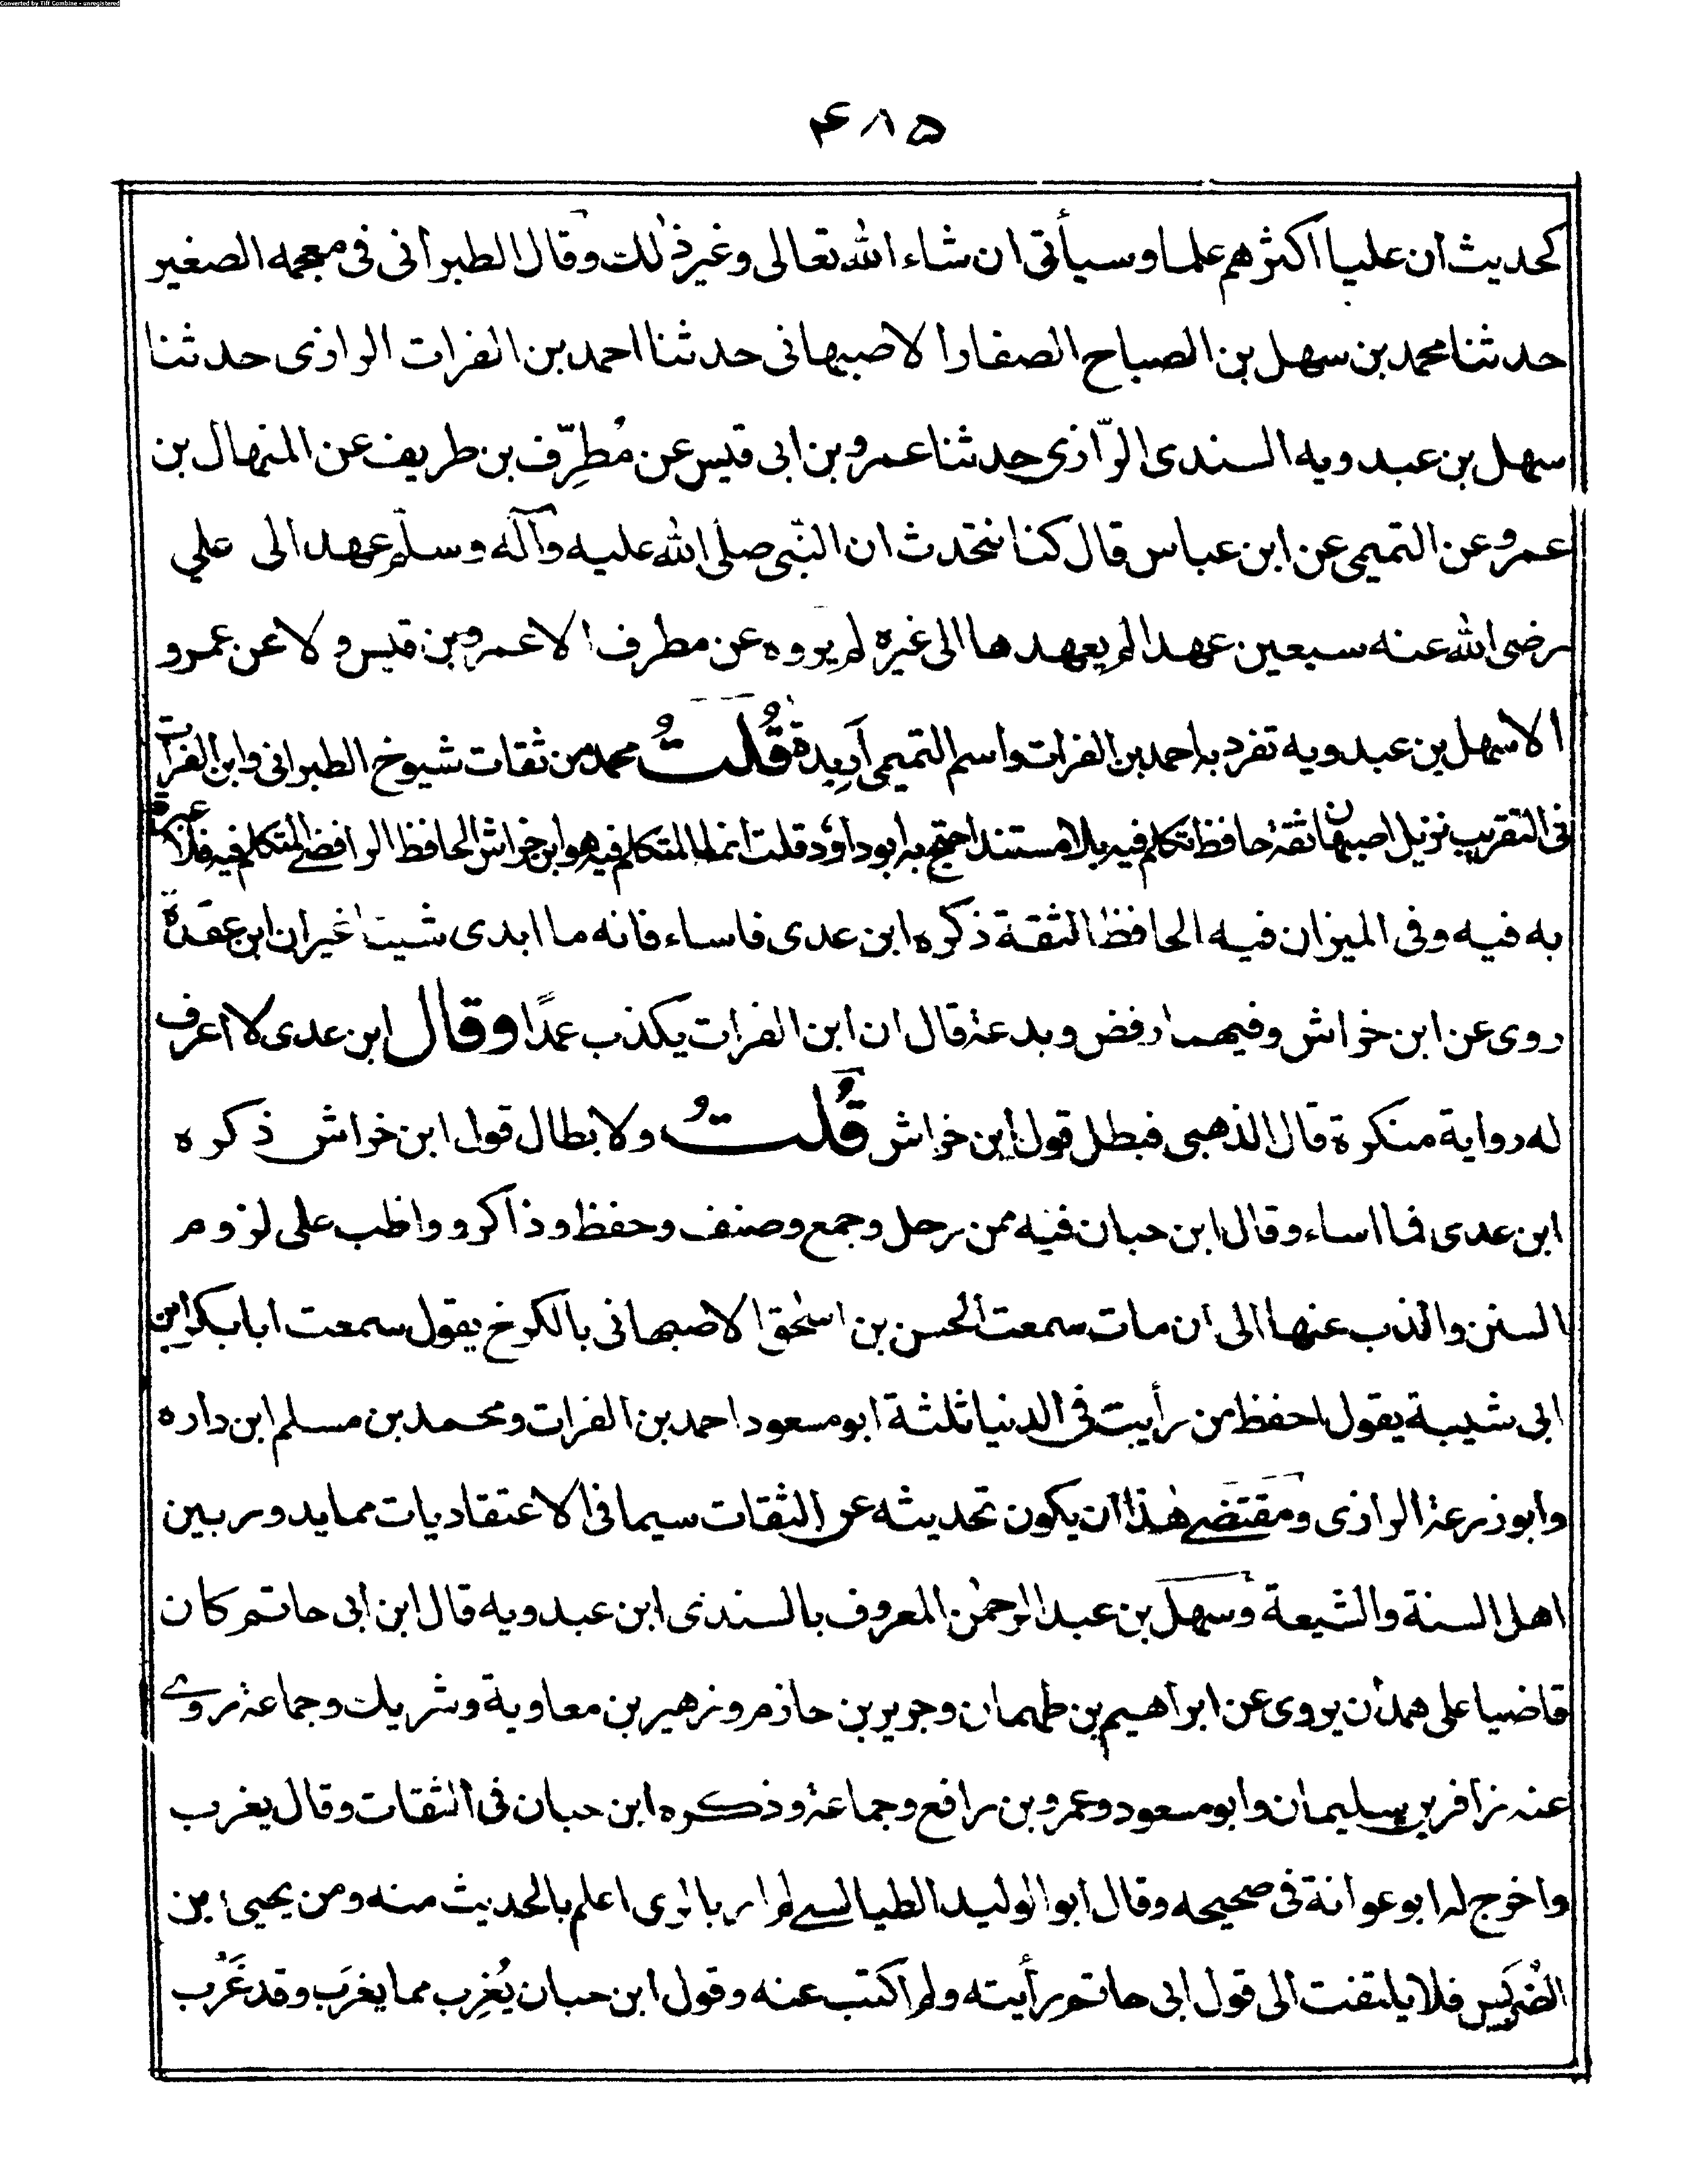 Converted by Tiff Combine - unregistered
۴۸۵
كحديث ان عليا اكثرهم علما وسيأتى ان شاء الله تعالى وغير ذٰلك وقال الطبرانى فى معجمه الصغير
حدثنا محمد بن سهل بن الصباح الصفار الاصبهانى حدثنا احمد بن الفرات الرازى حدثنا
سهل بن عبدويه السندى الرّازى حدثنا عمرو بن ابى قيس عن مُطرِّف بن طريف عن المنهال بن
عمرو عن التميمى عن ابن عباس قال كنا نتحدث ان النّبى صلى الله عليه وآله وسلّم عهد الى على
رضى الله عنه سبعين عهدا لم يعهدها الى غيره لم يروه عن مطرف الا عمرو بن قيس ولا عن عمرو
الا سهل بن عبدويه تفرد به احمد بن الفرات واسم التميمى اَرِبدة قُلتُ محمد من ثقات شيوخ الطبرانى وابن الفرات
فى التقريب نزيل اصبهان ثقة حافظ تكلم فيه بلا مستند احتج به ابو داؤد قلت انما المتكلم فيه هو ابن خراش الحافظ الرافضى المتكلم فيه فلا عبرة
به فيه وفى الميزان فيه الحافظ الثقة ذكره ابن عدى فاساء فانه ما ابدى شيئا غير ان ابن عقدة
روى عن ابن خراش وفيهما رفض وبدعة قال ان ابن الفرات يكذب عمدًا وقال ابن عدى لا اعرف
له رواية منكرة قال الذهبى فبطل قول ابن خراش قُلتُ ولابطال قول ابن خراش ذكره
ابن عدى فما اساء وقال ابن حبان فيه ممن رحل وجمع وصنف وحفظ وذاكر وواظب على لزوم
السنن والذب عنها الى ان مات سمعت الحسن بن اسحٰق الاصبهانى بالكرخ يقول سمعت ابابكر ابن
ابى شيبة يقول احفظ من رأيت فى الدنيا ثلثة ابو مسعود احمد بن الفرات ومحمد بن مسلم ابن داره
وابو زرعة الرازى ومقتضى هٰذا ان يكون تحديثه عن الثقات سيما فى الاعتقاديات مما يدور بين
اهل السنة والشيعة وسهل بن عبد الرحمٰن المعروف بالسندى ابن عبدويه قال ابن ابى حاتم كان
قاضيا على همدان يروى عن ابراهيم بن طهمان وجرير بن حازم وزهير بن معاوية وشريك وجماعة روى
عنه زافر بن سليمان وابو مسعود وعمرو بن رافع وجماعة وذكره ابن حبان فى الثقات وقال يغرب
واخرج له ابو عوانة فى صحيحه وقال ابو الوليد الطيالسى لم ار بالرى اعلم بالحديث منه ومن يحيىٰ بن
الضُريس فلا يلتفت الى قول ابى حاتم رأيته ولم اكتب عنه وقول ابن حبان يُغرِب مما يغرَب وقد غَرَّب